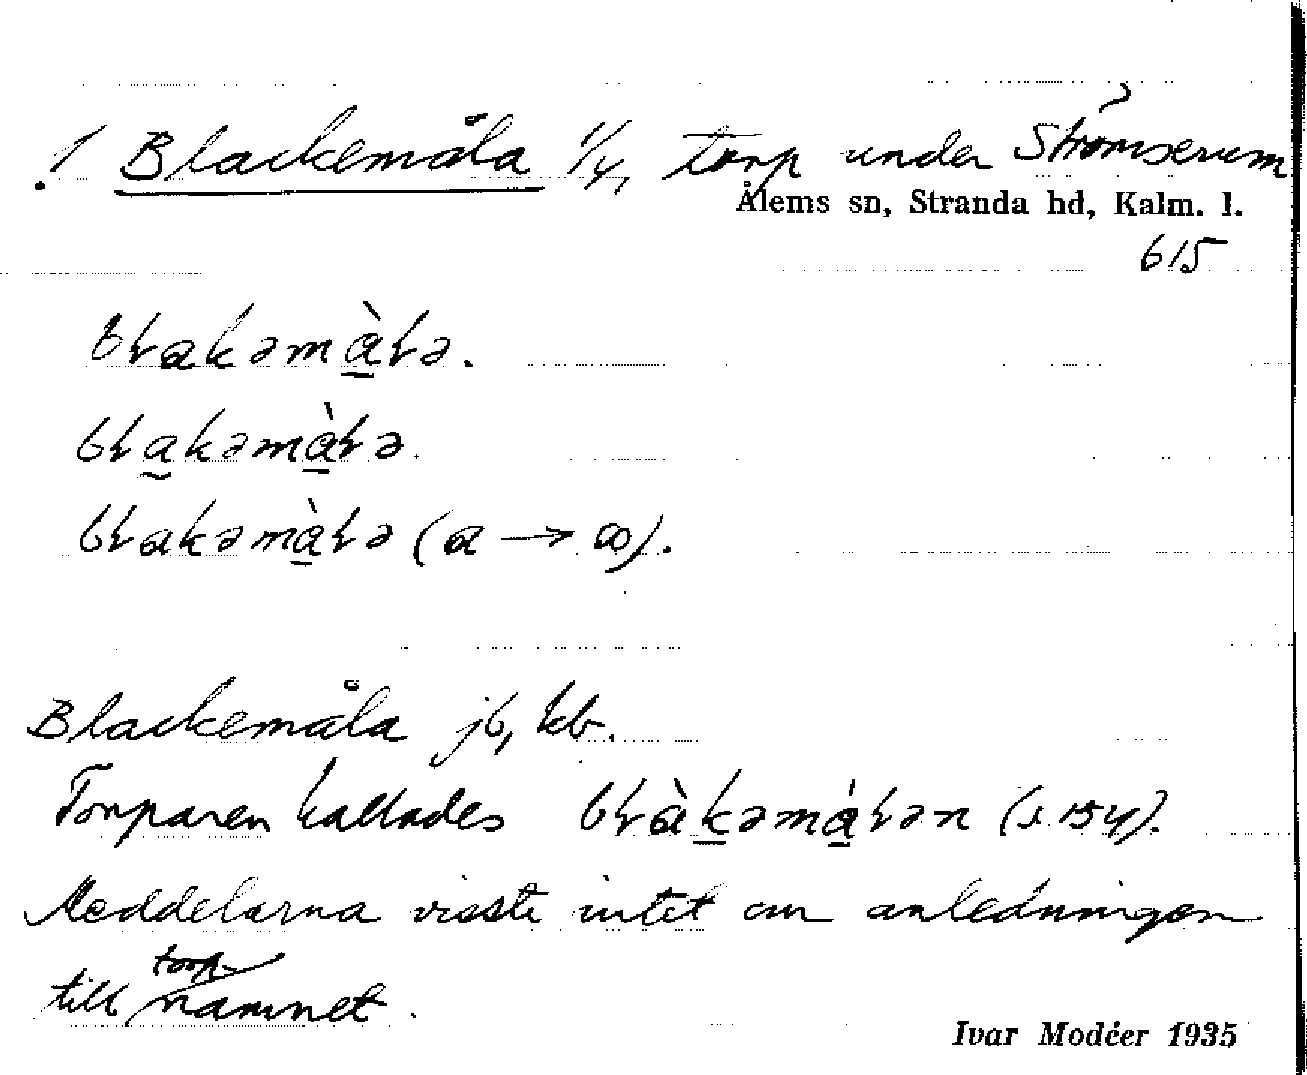 1 Blackemåla 1/4, torp under Strömserum
Ålems sn, Stranda hd, Kalm. l.
615
bɫakəmàɫə.
bɫakəmàɫə.
bɫakəmàɫə (a → ꝏ).
Blackemåla jb, kb.
Torparen kallades bɫàkəmáɫən (s. 154).
Meddelarna visste intet om anledningen
till torp-namnet.
Ivar Modéer 1935